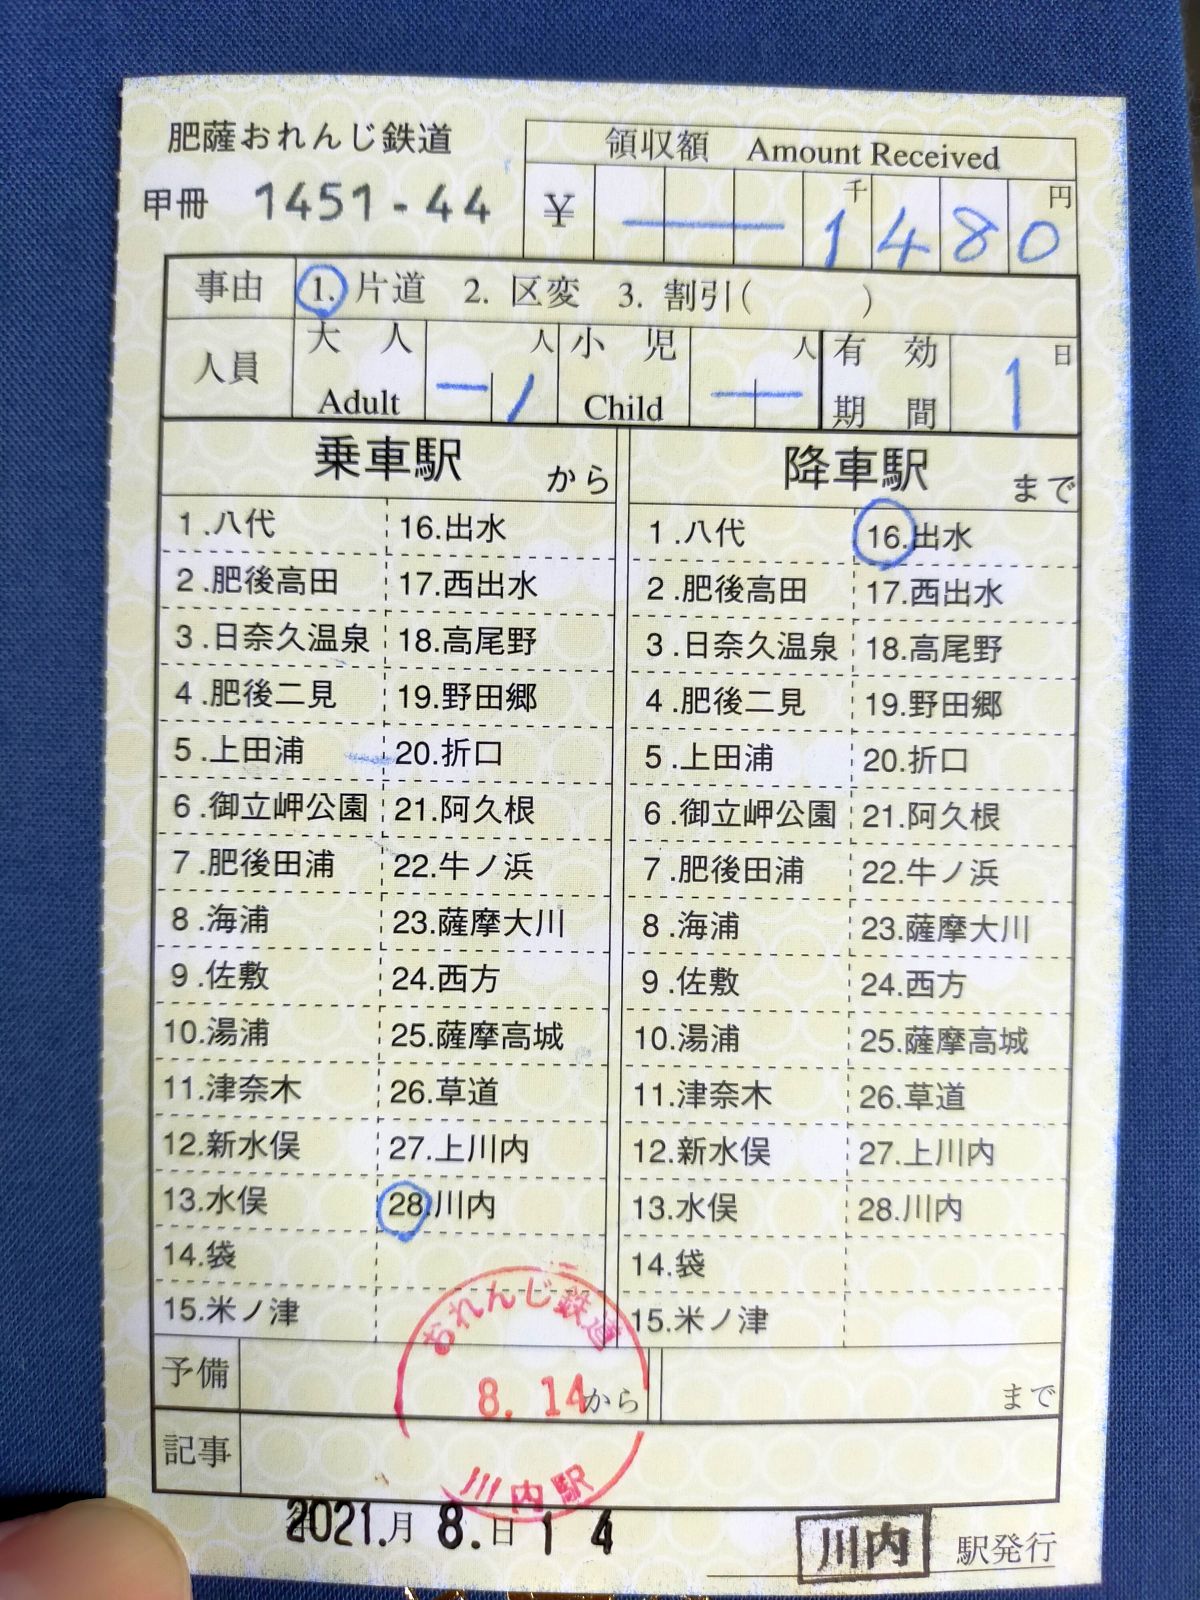 肥薩おれんじ鉄道
甲冊 1451-44
領収額 Amount Received
¥ 千 円
1480
事由 1. 片道 2. 区変 3. 割引( )
人員 大人 Adult 人 1 小児 Child 人 有効期間 1 日
乗車駅 から 降車駅 まで
1.八代 16.出水 1.八代 16.出水
2.肥後高田 17.西出水 2.肥後高田 17.西出水
3.日奈久温泉 18.高尾野 3.日奈久温泉 18.高尾野
4.肥後二見 19.野田郷 4.肥後二見 19.野田郷
5.上田浦 20.折口 5.上田浦 20.折口
6.御立岬公園 21.阿久根 6.御立岬公園 21.阿久根
7.肥後田浦 22.牛ノ浜 7.肥後田浦 22.牛ノ浜
8.海浦 23.薩摩大川 8.海浦 23.薩摩大川
9.佐敷 24.西方 9.佐敷 24.西方
10.湯浦 25.薩摩高城 10.湯浦 25.薩摩高城
11.津奈木 26.草道 11.津奈木 26.草道
12.新水俣 27.上川内 12.新水俣 27.上川内
13.水俣 28.川内 13.水俣 28.川内
14.袋 14.袋
15.米ノ津 15.米ノ津
おれんじ鉄道
8.14
川内駅
予備 から まで
記事
2021. 月 8. 日 14
川内 駅発行